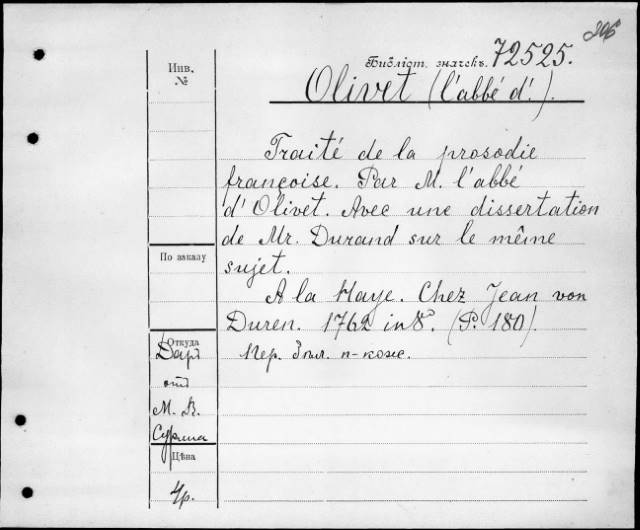 206
Библіот. значекъ. 72525.
Инв.
№
Olivet (l'abbé d'.).
Traité de la prosodie
françoise. Par M. l'abbé
d'Olivet. Avec une dissertation
de Mr. Durand sur le même
sujet.
По заказу
A la Haye. Chez Jean von
Duren. 1762 in 8°. (P. 180).
Откуда
Даръ
Пер. п-коже.
отъ
М. В.
Цѣна
4р.